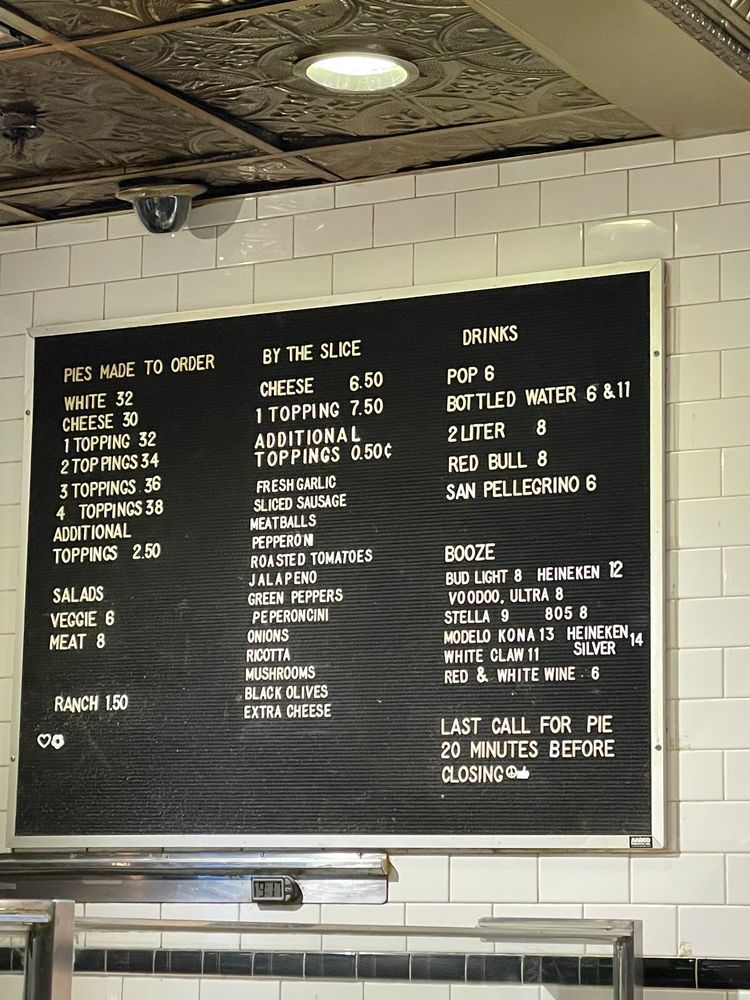 PIES MADE TO ORDER
WHITE 32
CHEESE 30
1 TOPPING 32
2 TOPPINGS 34
3 TOPPINGS 36
4 TOPPINGS 38
ADDITIONAL
TOPPINGS 2.50
SALADS
VEGGIE 6
MEAT 8
RANCH 1.50
BY THE SLICE
CHEESE 6.50
1 TOPPING 7.50
ADDITIONAL
TOPPINGS 0.50¢
FRESH GARLIC
SLICED SAUSAGE
MEATBALLS
PEPPERONI
ROASTED TOMATOES
JALAPENO
GREEN PEPPERS
PEPERONCINI
ONIONS
RICOTTA
MUSHROOMS
BLACK OLIVES
EXTRA CHEESE
DRINKS
POP 6
BOTTLED WATER 6 & 11
2 LITER 8
RED BULL 8
SAN PELLEGRINO 6
BOOZE
BUD LIGHT 8 HEINEKEN 12
VOODOO, ULTRA 8
STELLA 9 805 8
MODELO KONA 13 HEINEKEN 14
WHITE CLAW 11 SILVER
RED & WHITE WINE 6
LAST CALL FOR PIE
20 MINUTES BEFORE
CLOSING